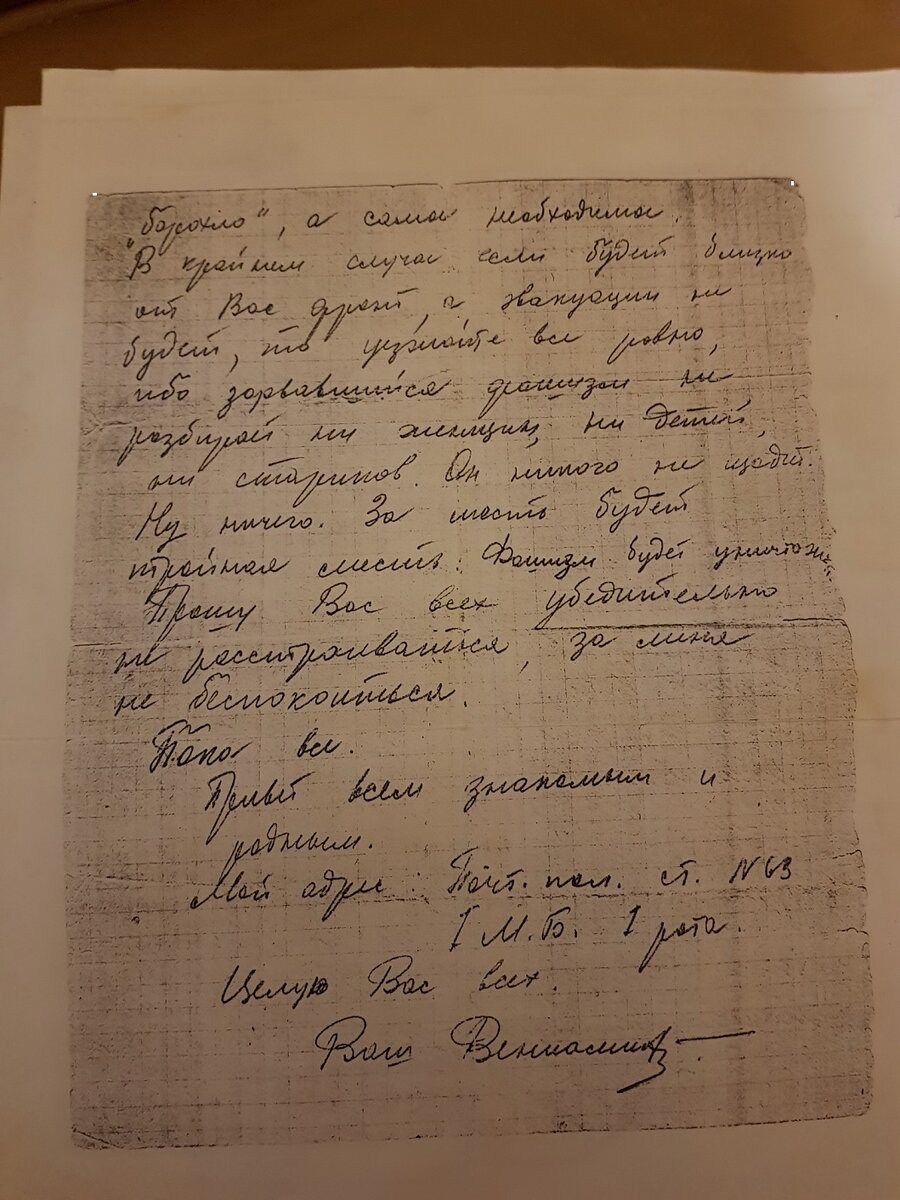 "барахло", а самое необходимое.
В крайнем случае если будет близко
от Вас фронт, а эвакуации не
будет, то уезжайте все равно,
ибо зарвавшийся фашизм не
разбирает ни женщин, ни детей,
ни стариков. Он никого не щадит.
Ну ничего. За месть будет
тройная месть. Фашизм будет уничтожен.
Прошу Вас всех убедительно
не расстраиваться, за меня
не беспокоиться.
Пока все.
Привет всем знакомым и
родным.
Мой адрес: Почт. пол. ст. N 63
I М.Б. 1 рота.
Целую Вас всех.
Ваш Вениамин